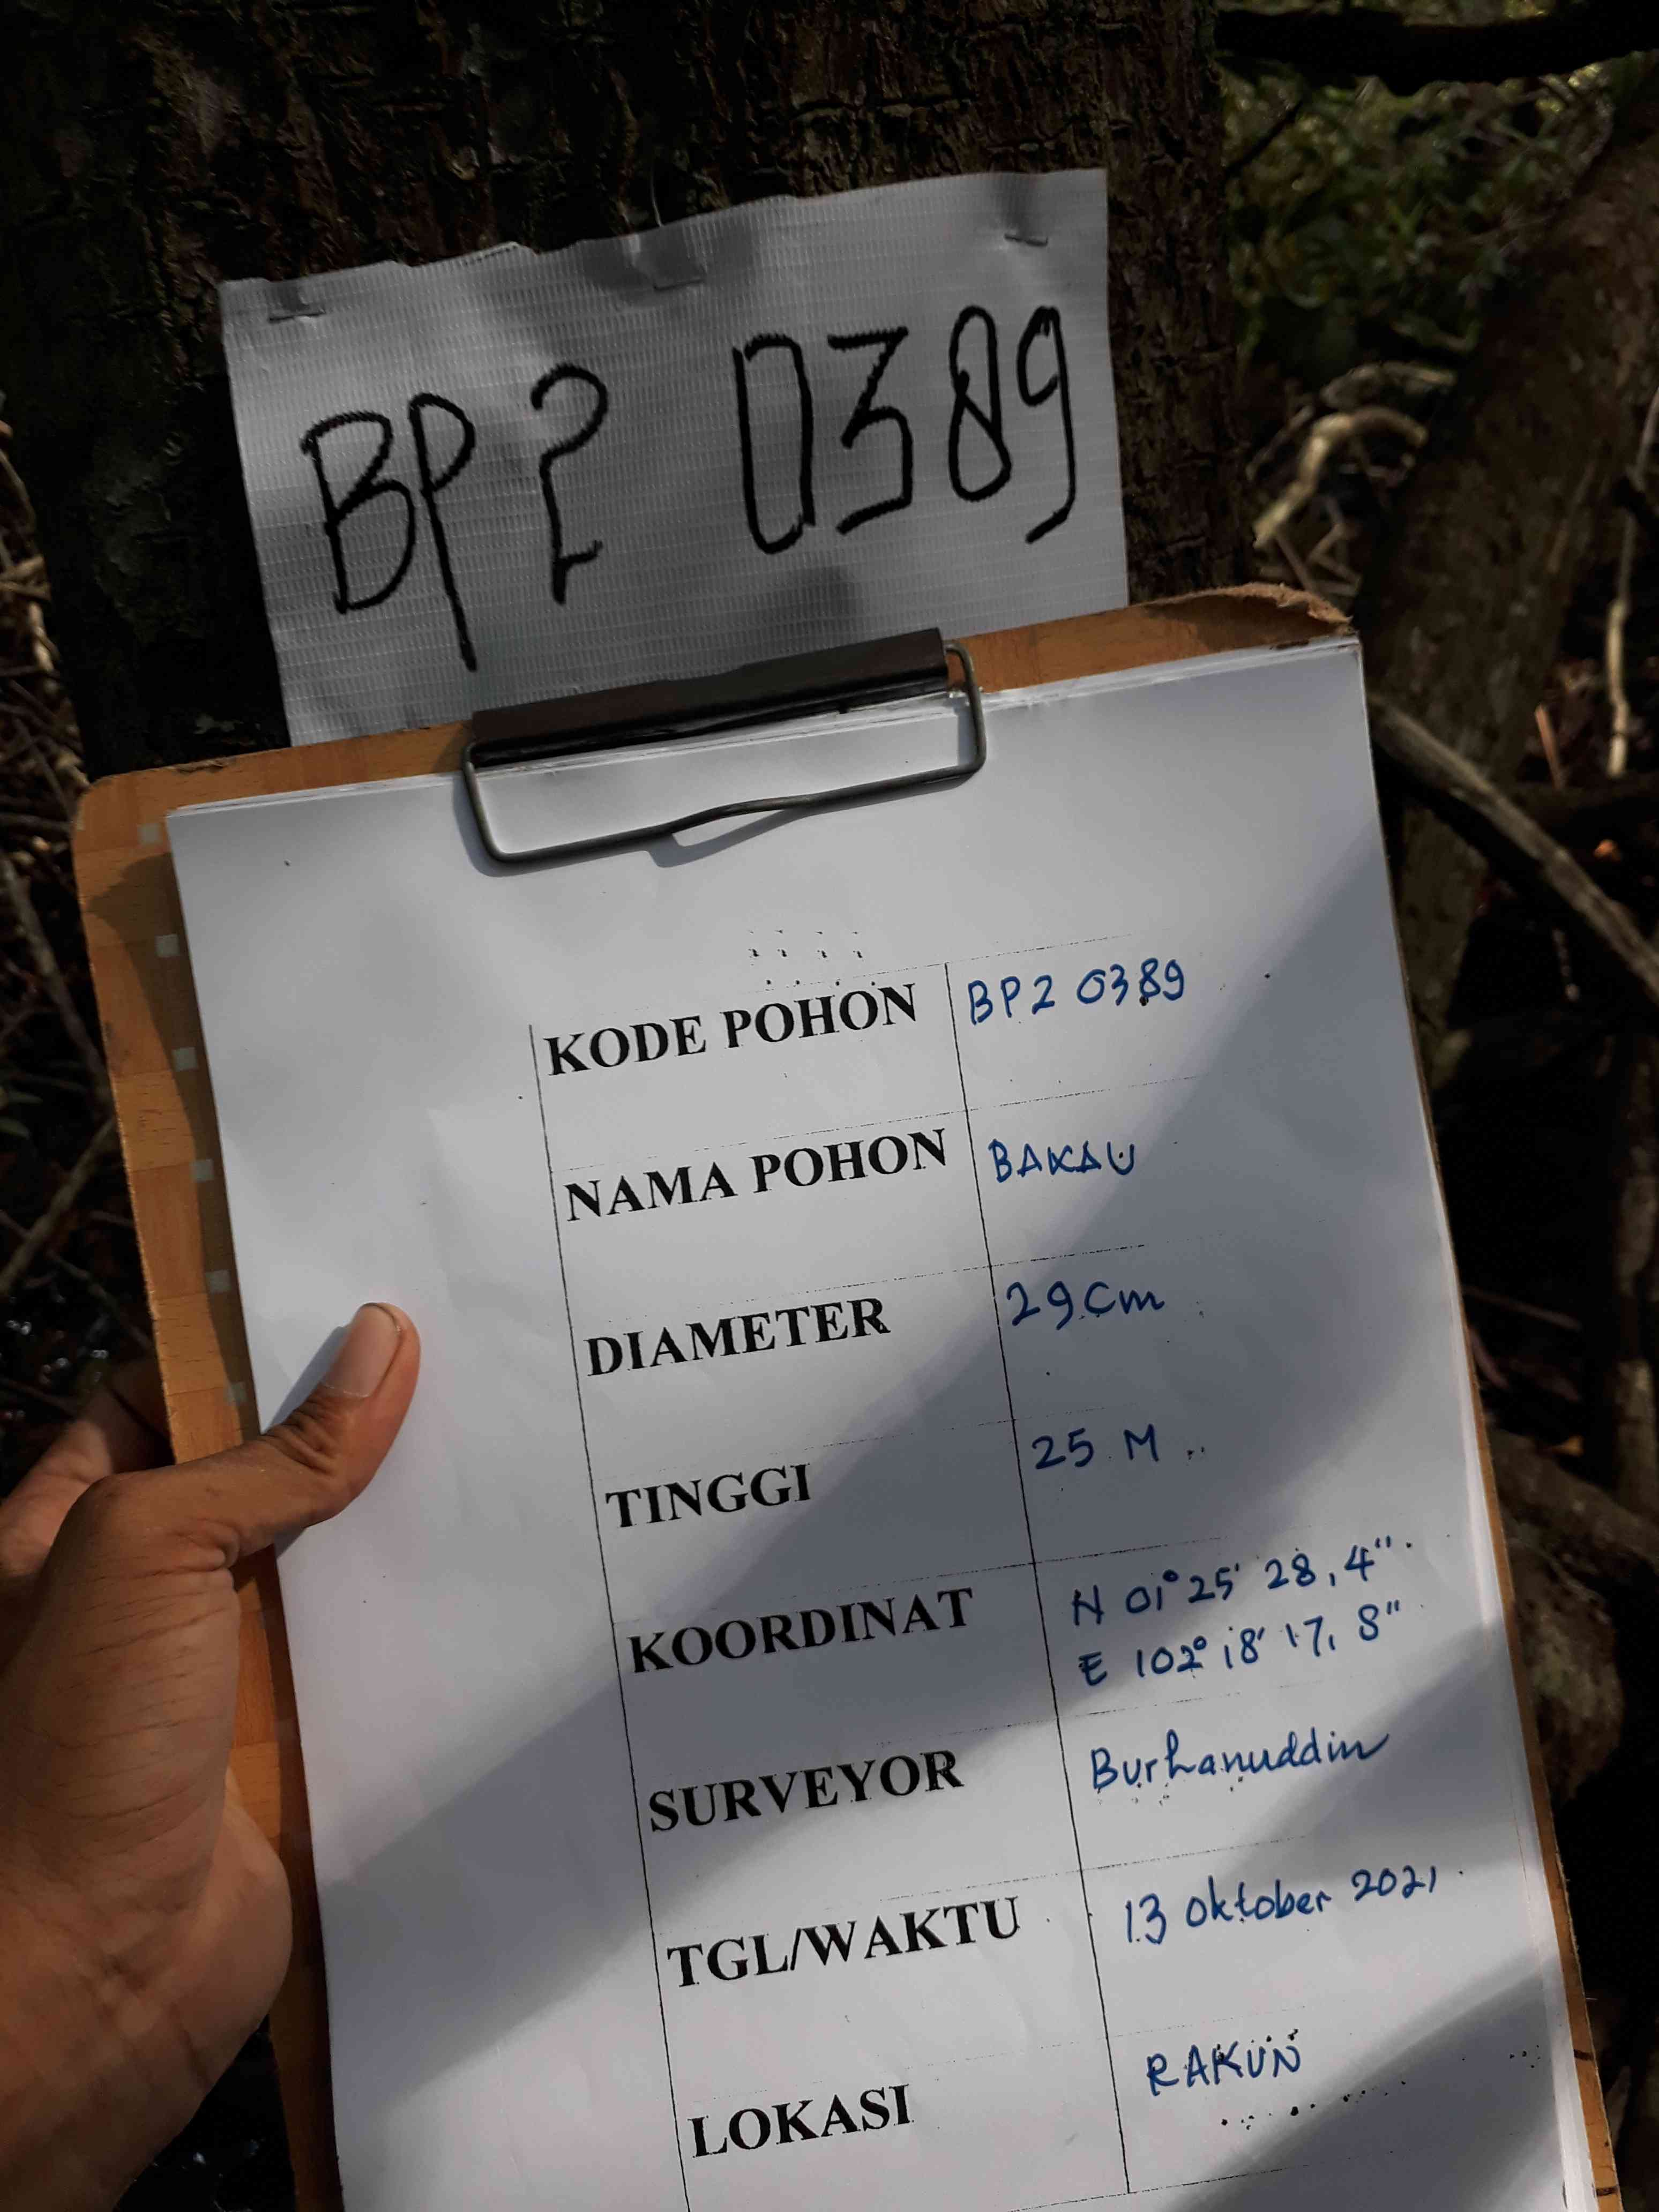 BP2 0389
KODE POHON BP2 0389
NAMA POHON BAKAU
DIAMETER 29 Cm
TINGGI 25 M
KOORDINAT N 01° 25' 28,4"
E 102° 18' 17,8"
SURVEYOR Burhanuddin
TGL/WAKTU 13 Oktober 2021
LOKASI RAKUN